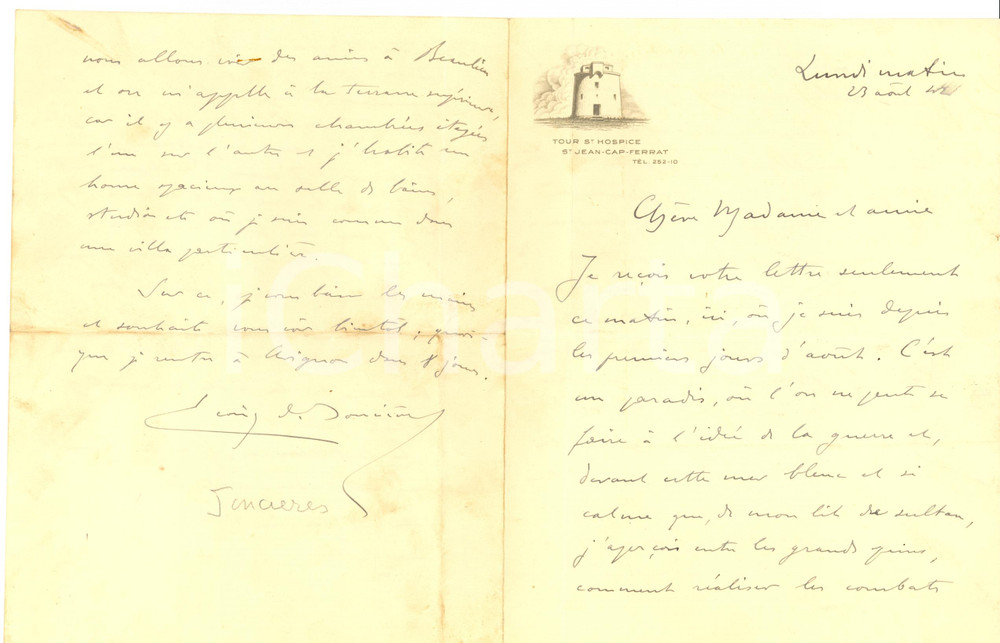 Lundi matin
23 août 42
TOUR St HOSPICE
St JEAN-CAP-FERRAT
TÉL. 252-10
Chère Madame et amie
Je reçois votre lettre seulement
ce matin, ici, où je suis depuis
les premiers jours d'août. C'est
un paradis, où l'on ne peut se
faire à l'idée de la guerre et,
devant cette mer bleue et si
calme que, de mon lit de sultan,
j'aperçois entre les grands pins,
comment réaliser les combats
nous allons voir des amis à Beaulieu
et on m'appelle à la terrasse supérieure,
car il y a plusieurs chambrées étagées
l'une sur l'autre et j'habite un
home spacieux au salle de bains,
studio etc où je suis comme dans
une villa particulière.
Sur ce, je vous baise les mains
et souhaite vous voir bientôt, quoi-
que je rentre à Avignon dans 8 jours.
Jincieres
iCharta